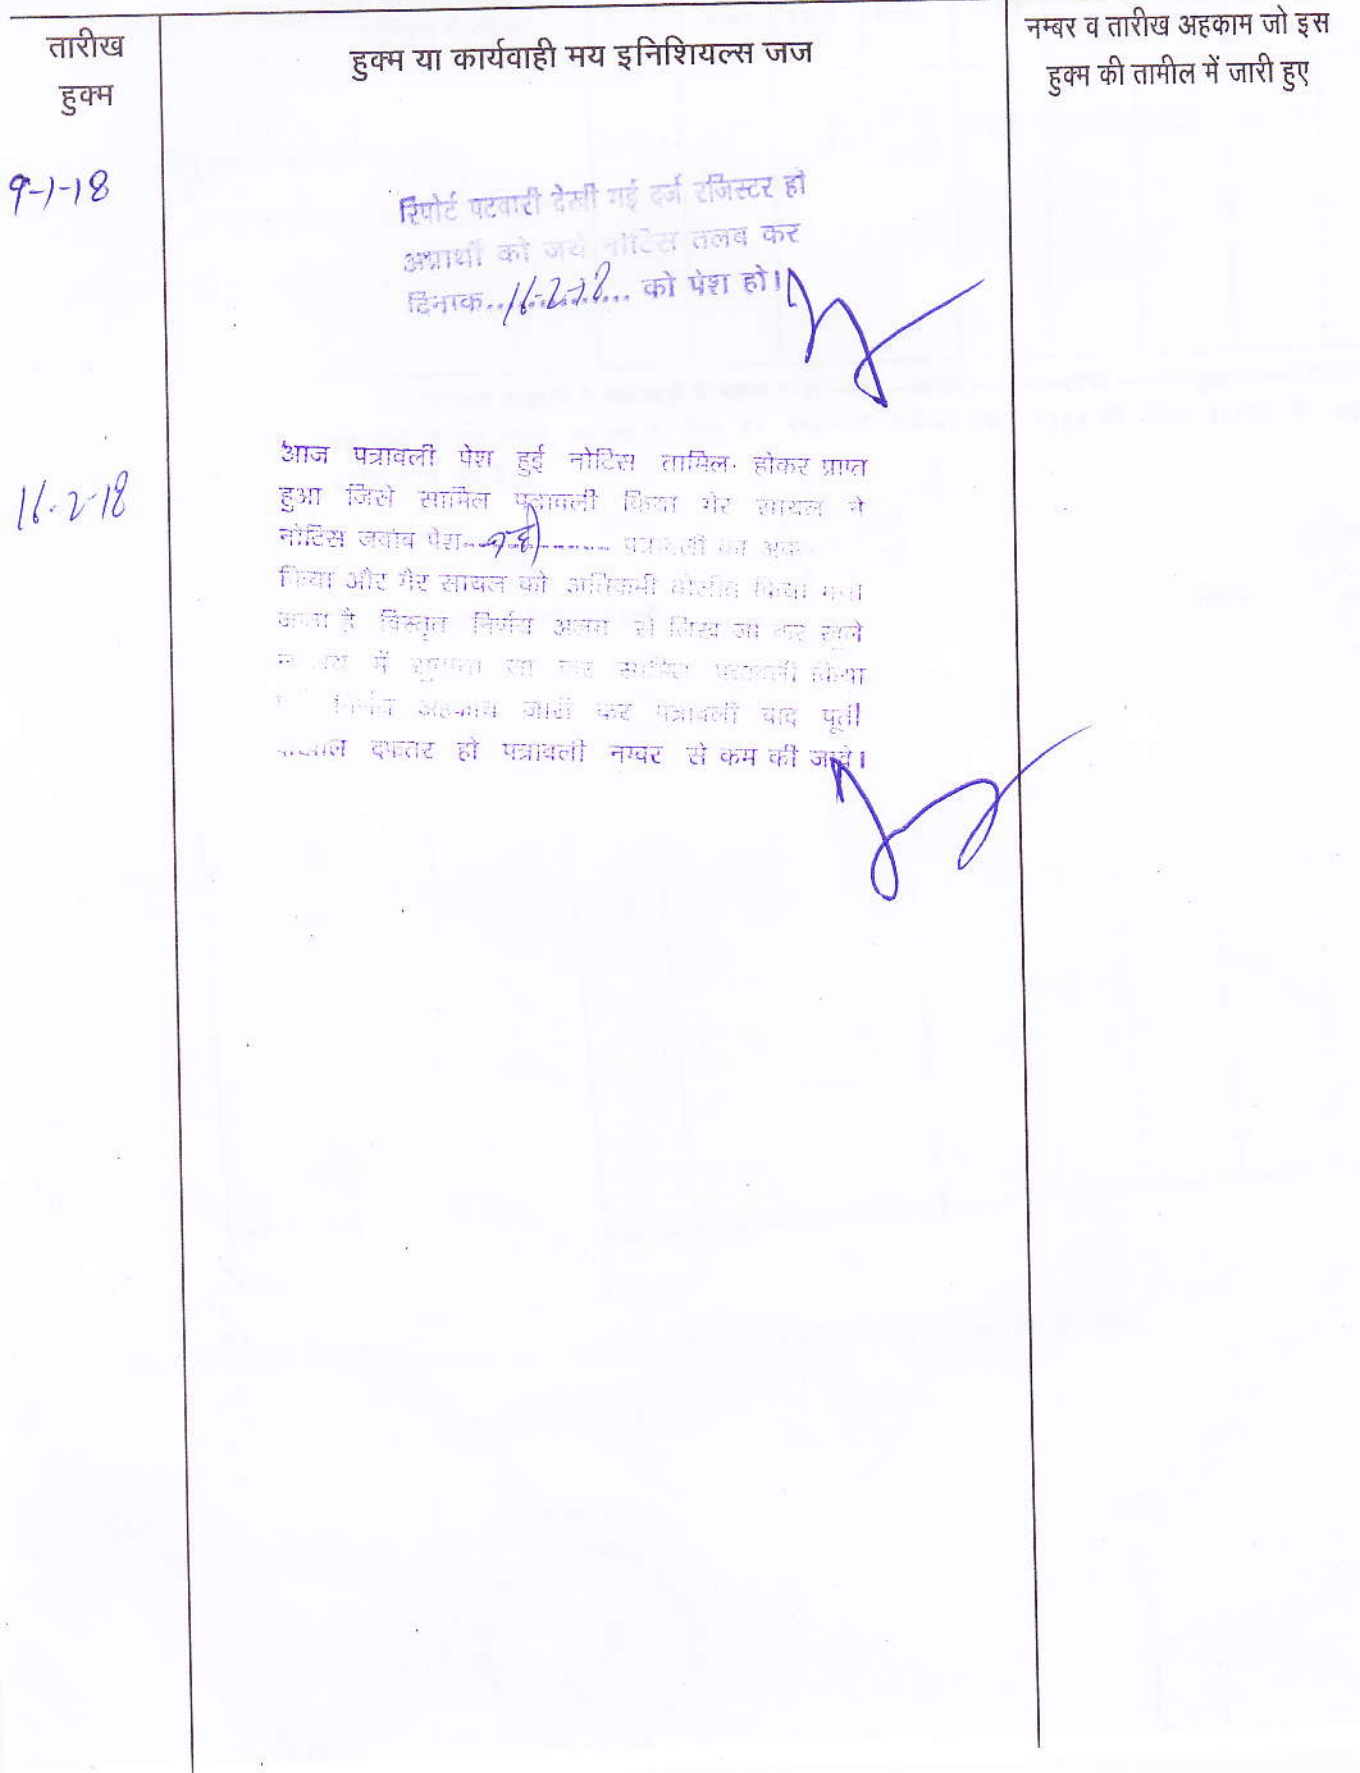 तारीख
हुक्म
हुक्म या कार्यवाही मय इनिशियल्स जज
नम्बर व तारीख अहकाम जो इस
हुक्म की तामील में जारी हुए
9-1-18
रिपोर्ट पटवारी देखी गई दर्ज रजिस्टर हो
अप्रार्थी को जर्ये नोटिस तलब कर
दिनाक..16-2-18.. को पेश हो।
16-2-18
आज पत्रावली पेश हुई नोटिस तामिल होकर प्राप्त
हुआ जिसे सामिल पत्रावली किया गेर सायल ने
नोटिस जवाब पेश...नहीं...... पत्रावली का
किया और गैर सायल को अतिक्रमी किया
है विस्तृत निर्णय अलग से लिख जा कर खुले
में सामिल पत्रावली किया
जारी कर पत्रावली बाद पूर्ती
दफतर हो पत्रावली नम्बर से कम की जावे।